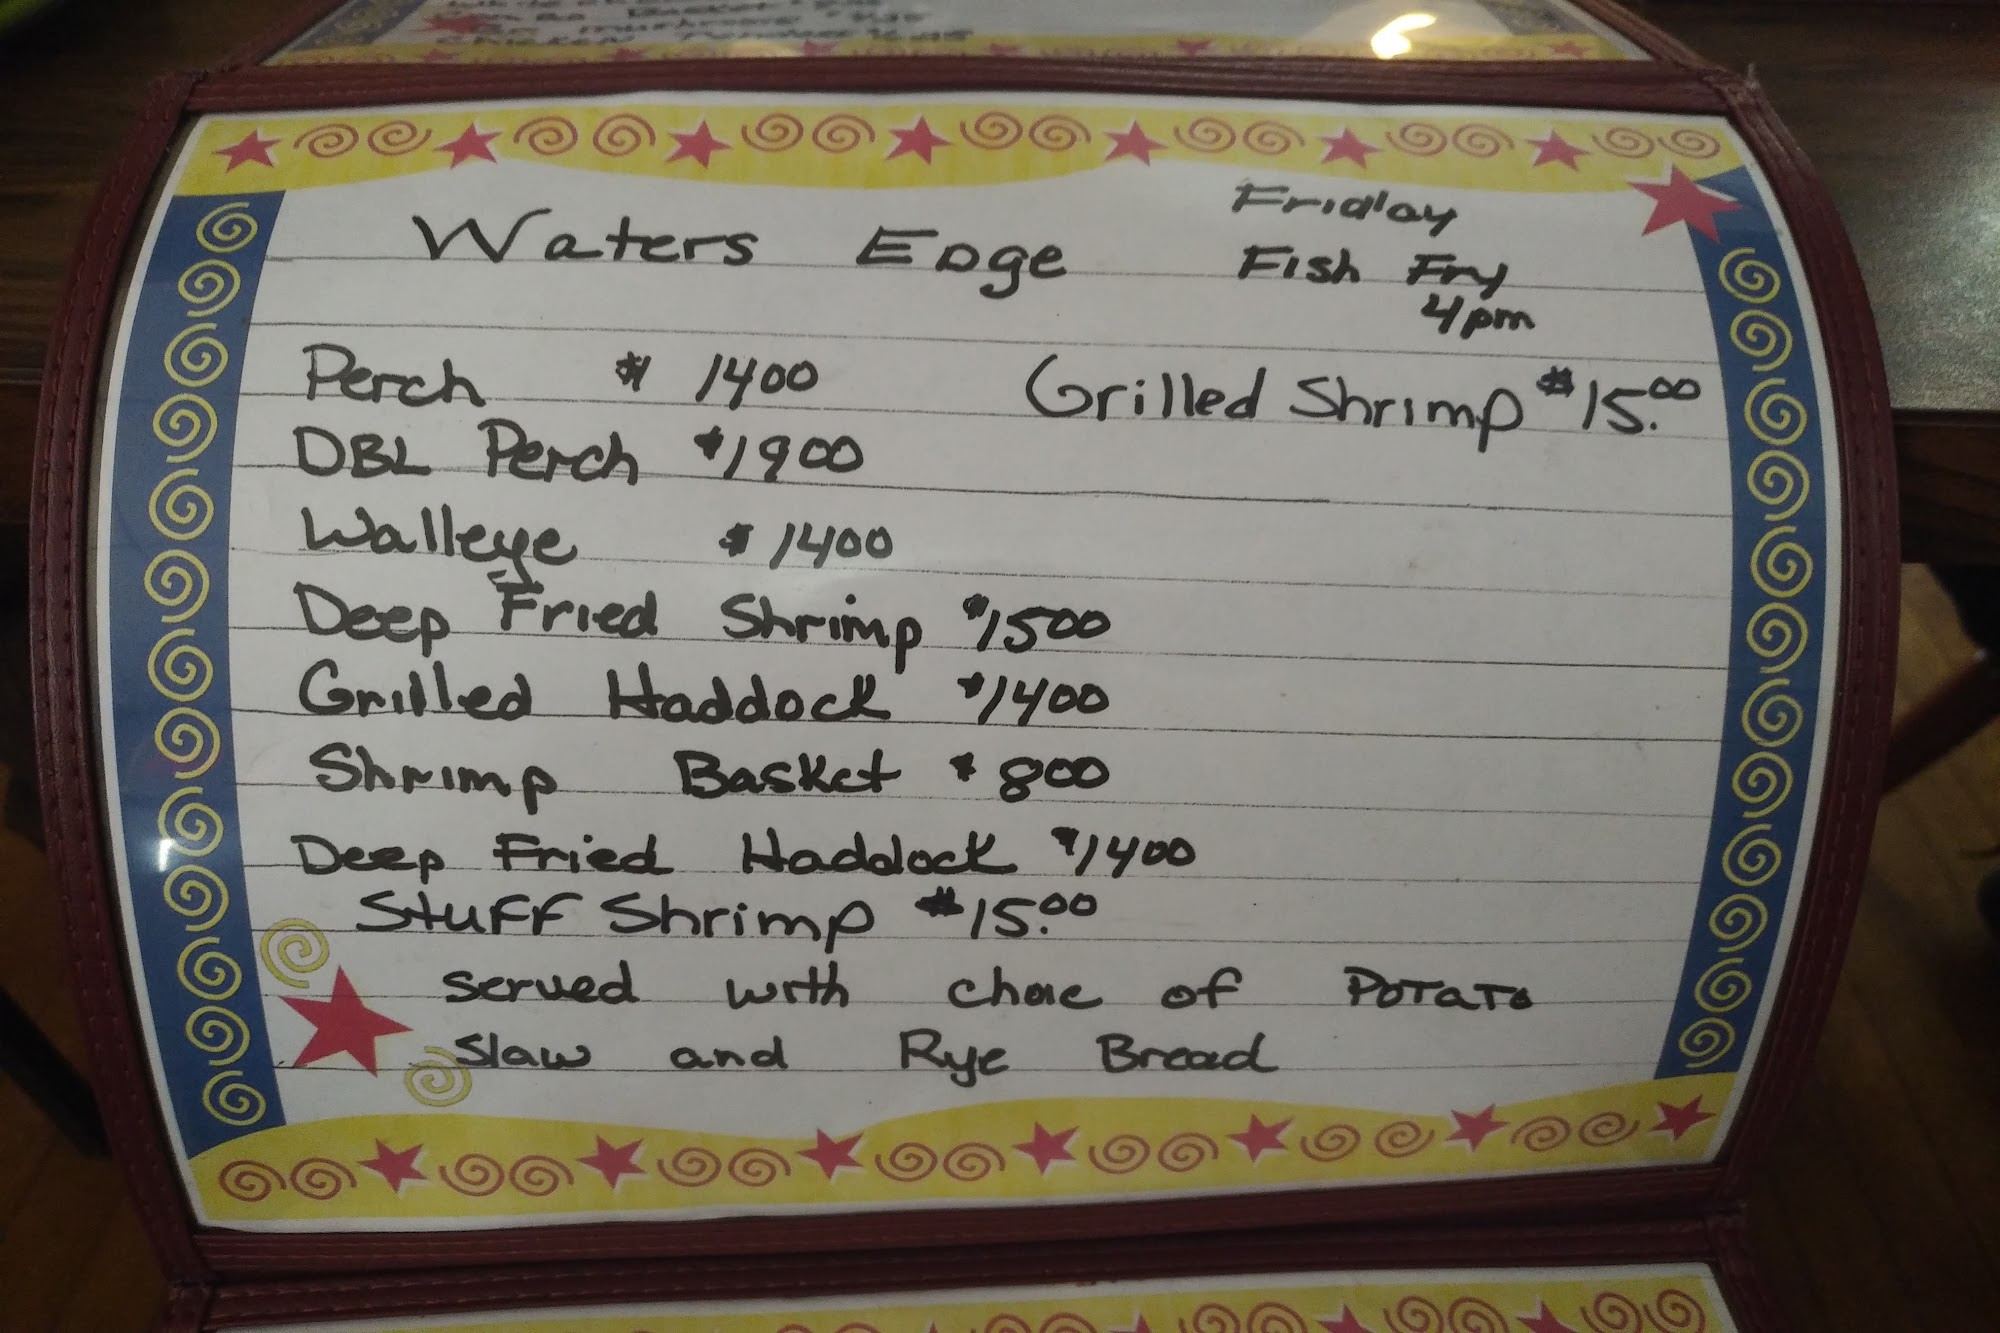 Waters Edge
Friday
Fish Fry
4pm
Perch $ 1400
Grilled Shrimp $15.00
DBL Perch $1900
Walleye $ 1400
Deep Fried Shrimp $1500
Grilled Haddock $1400
Shrimp Basket $ 800
Deep Fried Haddock $1400
Stuff Shrimp $15.00
served with choie of Potato
Slaw and Rye Bread